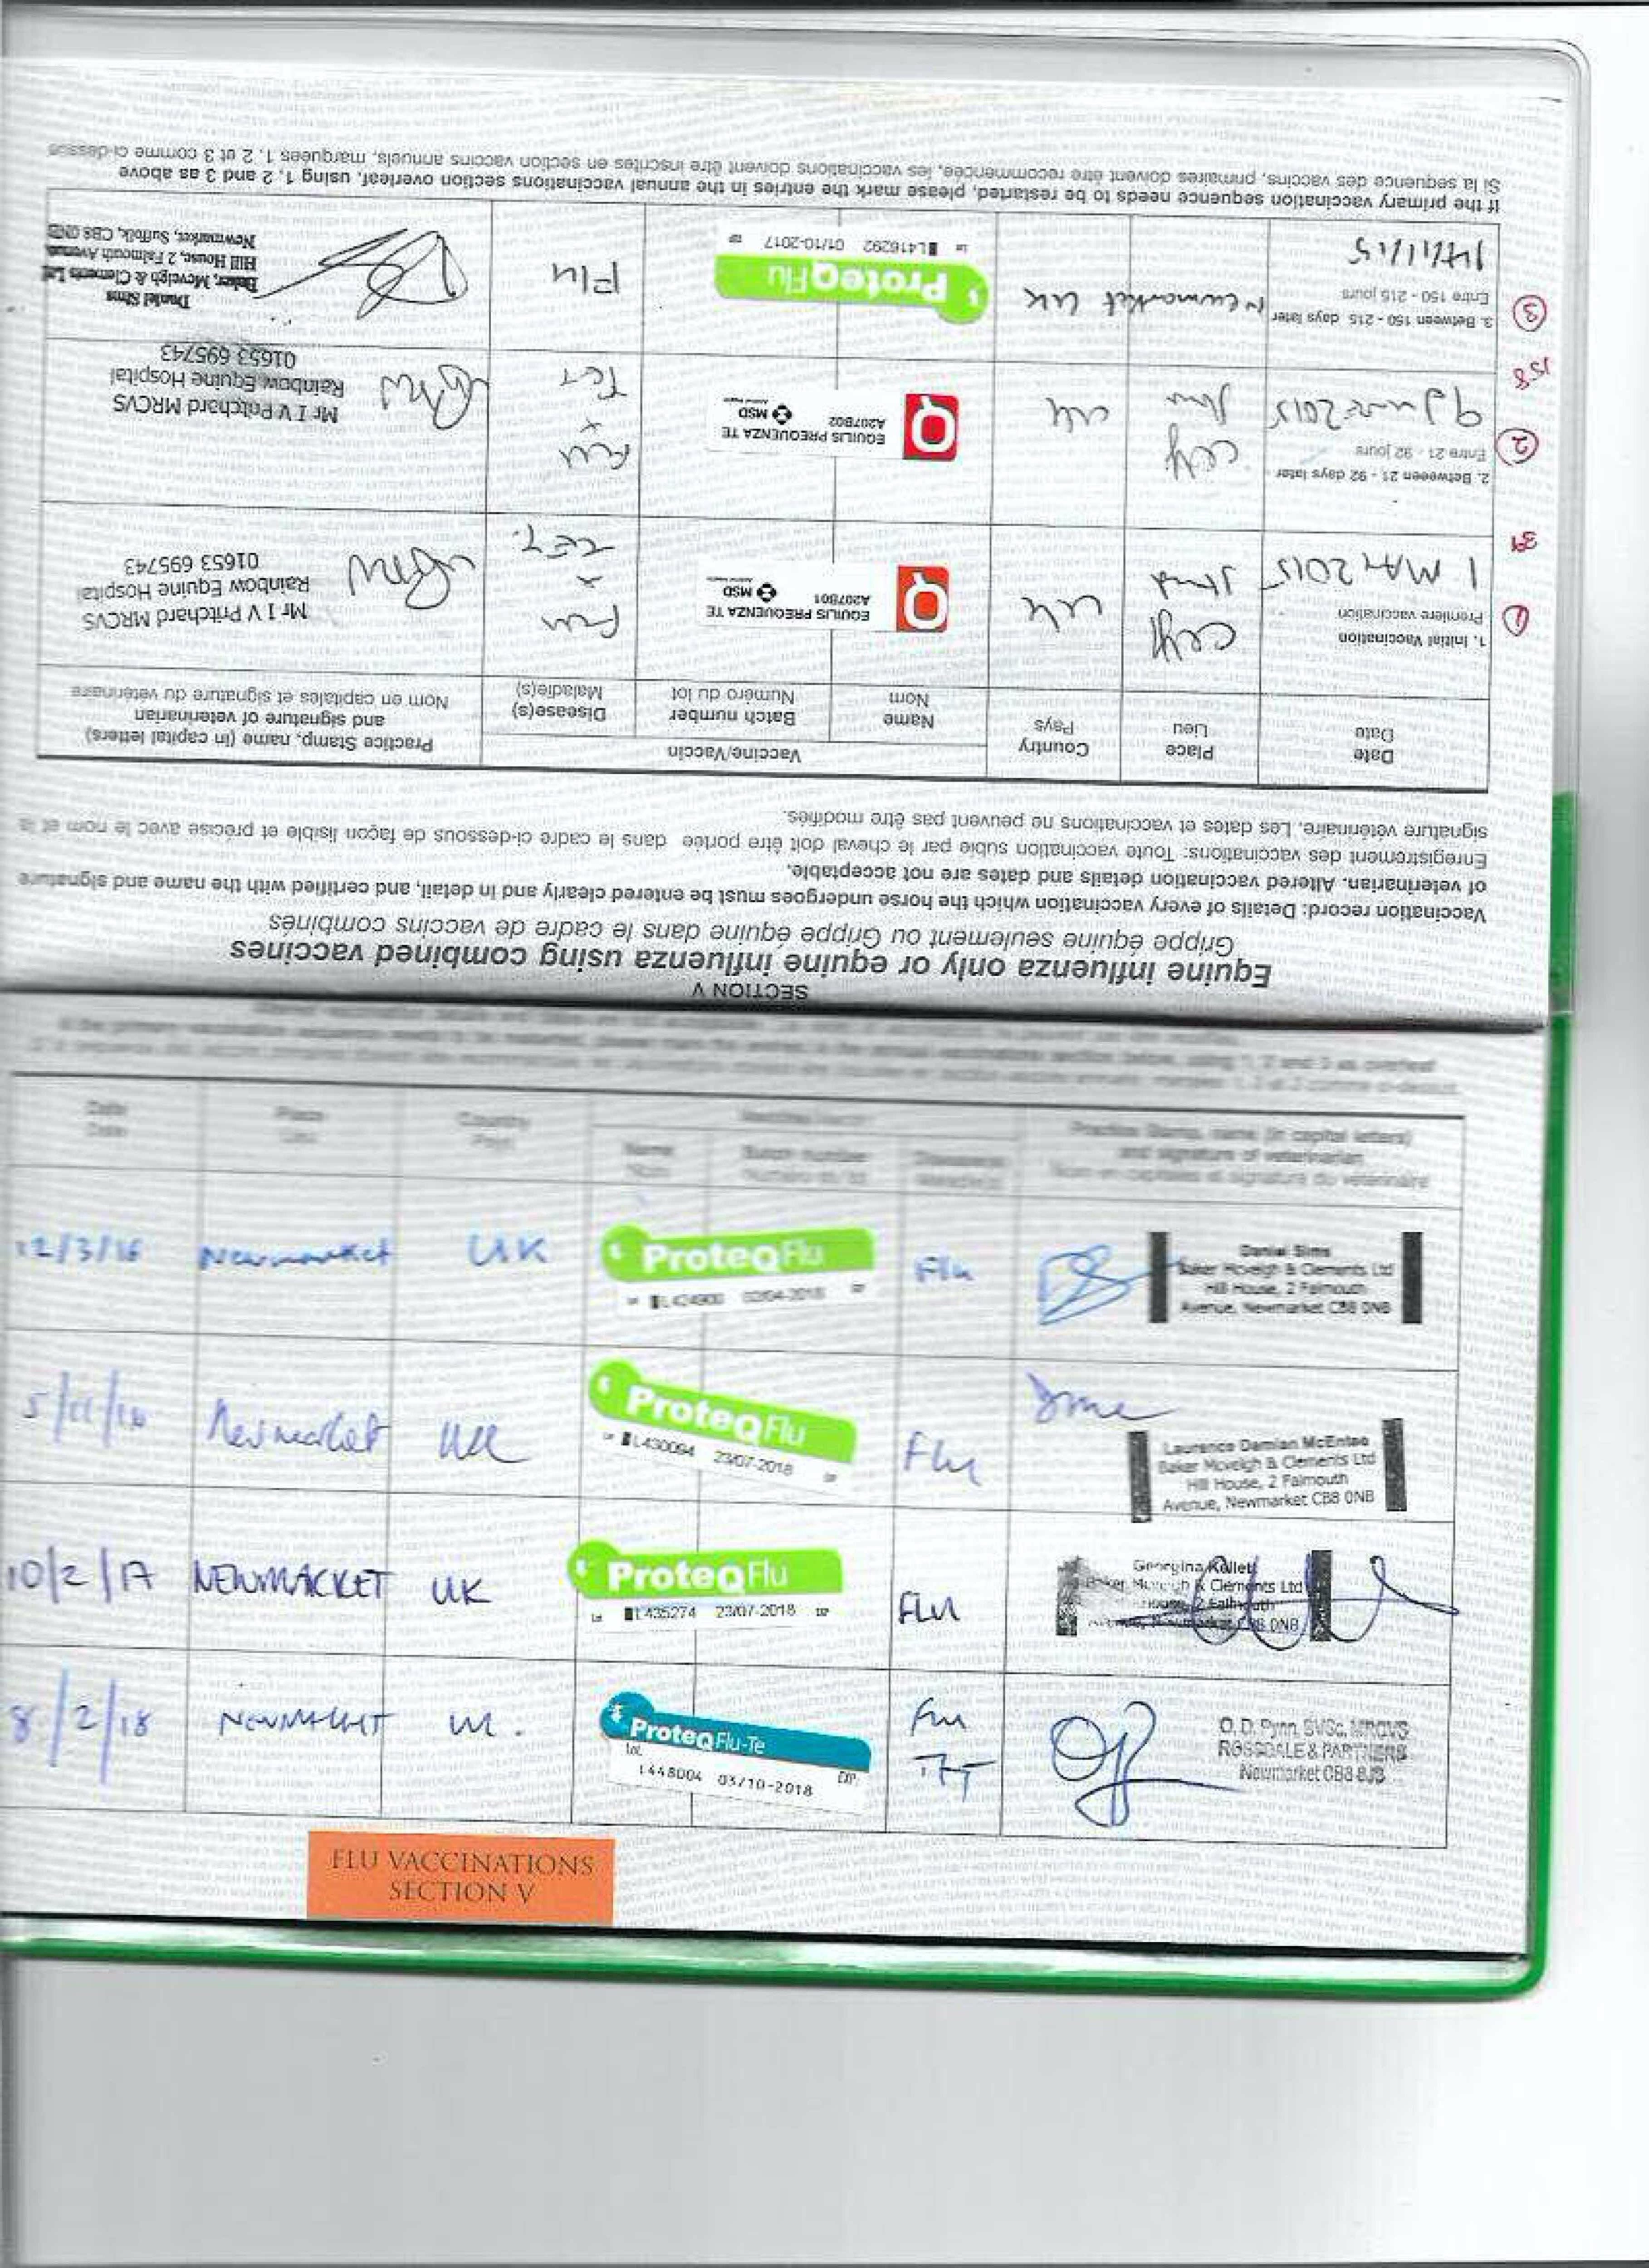 SECTION V
Equine influenza only or equine influenza using combined vaccines
Grippe équine seulement ou Grippe équine dans le cadre de vaccins combinés
Vaccination record: Details of every vaccination which the horse undergoes must be entered clearly and in detail, and certified with the name and signature
of veterinarian. Altered vaccination details and dates are not acceptable.
Enregistrement des vaccinations: Toute vaccination subie par le cheval doit être portée dans le cadre ci-dessous de façon lisible et précise avec le nom et la
signature vétérinaire. Les dates et vaccinations ne peuvent pas être modifiés.
Date
Date
Place
Lieu
Country
Pays
Vaccine/Vaccin
Name
Nom
Batch number
Numéro du lot
Disease(s)
Maladie(s)
Practice Stamp, name (in capital letters)
and signature of veterinarian
Nom en capitales et signature du vétérinaire
1
1. Initial Vaccination
Première vaccination
1 MAY 2015
UK
EQUILIS PREQUENZA TE
A207B01
MSD
Flu
+
TET.
Mr I V Pritchard MRCVS
Rainbow Equine Hospital
01653 695743
39
2
2. Betweeen 21 - 92 days later
Entre 21 - 92 jours
9 June 2015
UK
EQUILIS PREQUENZA TE
A207B02
MSD
Flu
+
TET
Mr I V Pritchard MRCVS
Rainbow Equine Hospital
01653 695743
158
3
3. Between 150 - 215 days later
Entre 150 - 215 jours
14/11/15
Newmarket UK
ProteqFlu
L416292 01/10-2017
Flu
Daniel Sims
Baker, Mcveigh & Clements Ltd
Hill House, 2 Falmouth Avenue,
Newmarket, Suffolk, CB8 0NB
If the primary vaccination sequence needs to be restarted, please mark the entries in the annual vaccinations section overleaf, using 1, 2 and 3 as above
Si la sequence des vaccins, primaires doivent être recommencée, les vaccinations doivent être inscrites en section vaccins annuels, marquées 1, 2 et 3 comme ci-dessus
Date
Date
Place
Lieu
Country
Pays
Name
Nom
Batch number
Practice Stamp, name (in capital letters)
and signature of veterinarian
Nom en capitales et signature du vétérinaire
12/3/16
Newmarket
UK
ProteqFlu
L424900 02/04-2018
Flu
Daniel Sims
Baker Mcveigh & Clements Ltd
Hill House, 2 Falmouth
Avenue, Newmarket CB8 0NB
5/11/16
Newmarket
UK
ProteqFlu
L430094 23/07-2018
Flu
Laurence Damian McEntee
Baker Mcveigh & Clements Ltd
Hill House, 2 Falmouth
Avenue, Newmarket CB8 0NB
10/2/17
NEWMARKET
UK
ProteqFlu
L435274 23/07-2018
FLU
Georgina Kellett
Baker Mcveigh & Clements Ltd
House, 2 Falmouth
Avenue, Newmarket CB8 0NB
8/2/18
NEWMARKET
UK.
ProteqFlu-Te
Lot.
L448004 03/10-2018
EXP.
Flu
TT
O. D. Pynn, BVSc, MRCVS
ROSSDALE & PARTNERS
Newmarket CB8 8JS
FLU VACCINATIONS
SECTION V